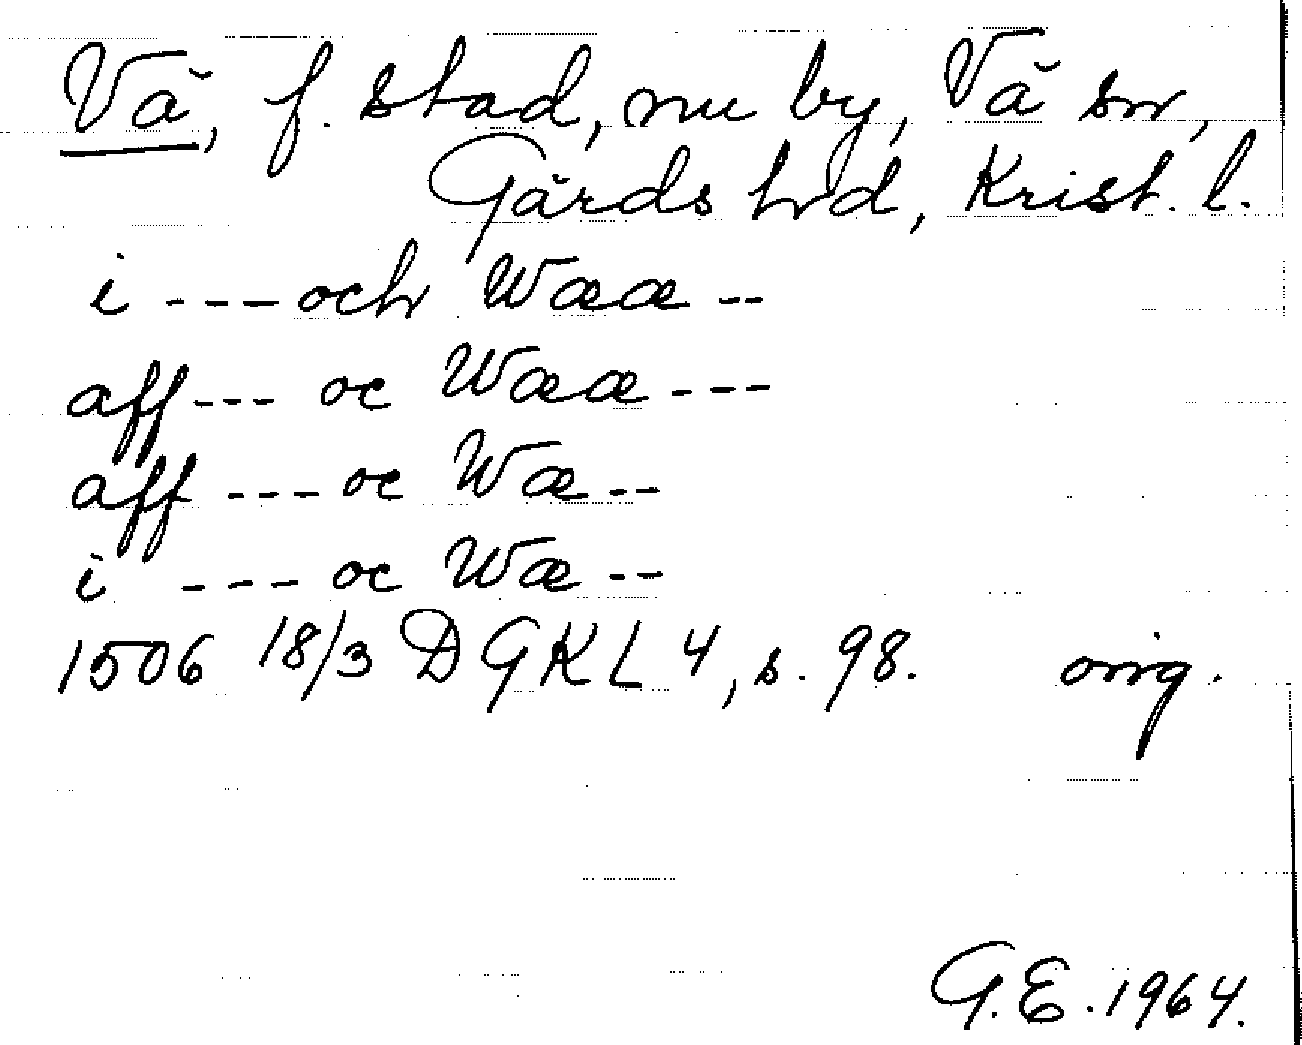 Vä, f. stad, nu by, Vä sn,
Gärds hd, Krist. l.
i ---- och Wææ --
aff --- oc Wææ ---
aff --- oc Wæ --
i --- oc Wæ --
1506 18/3 DGKL 4, s. 98. orig.
G.E. 1964.